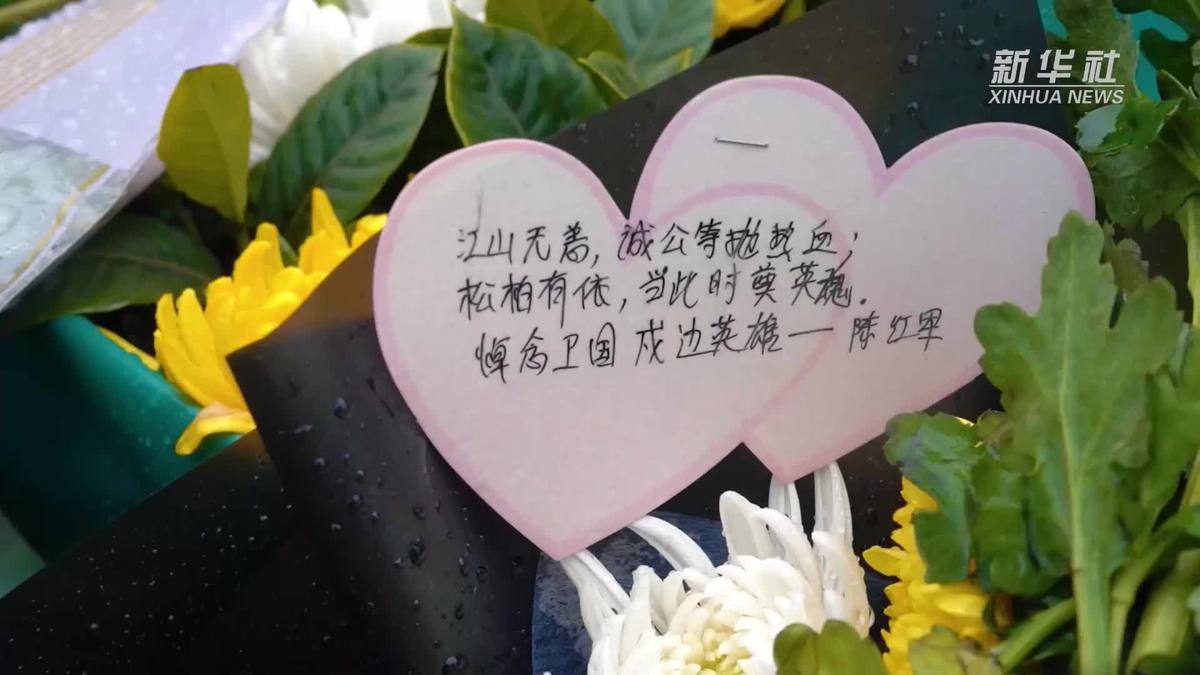 新华社
XINHUA NEWS
江山无恙，诚公等抛热血；
松柏有依，当此时奠英魂.
悼念卫国戍边英雄——陈红军